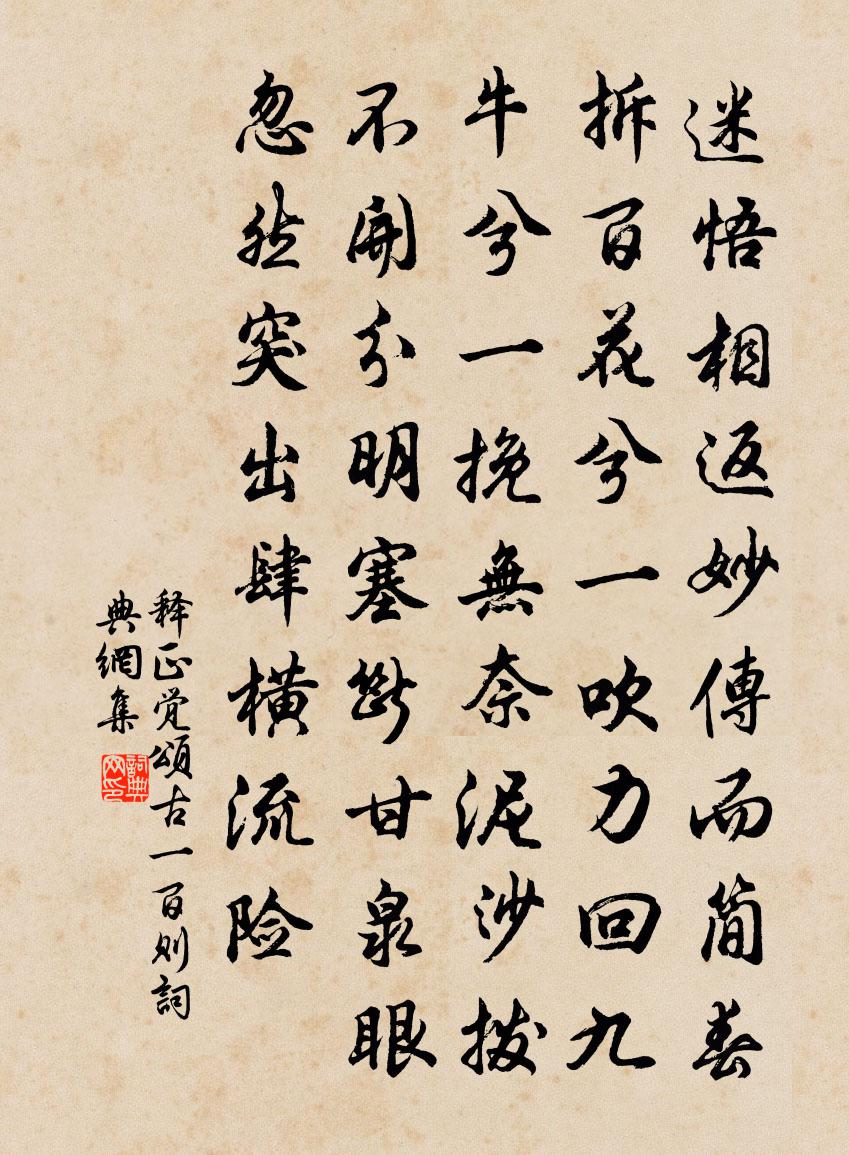 迷悟相返妙傳而简春
拆百花兮一吹力回九
牛兮一挽無奈泥沙撥
不開分明塞斷甘泉眼
忽然突出肆橫流险
释正觉頌古一百则詞
典網集
詞典网印